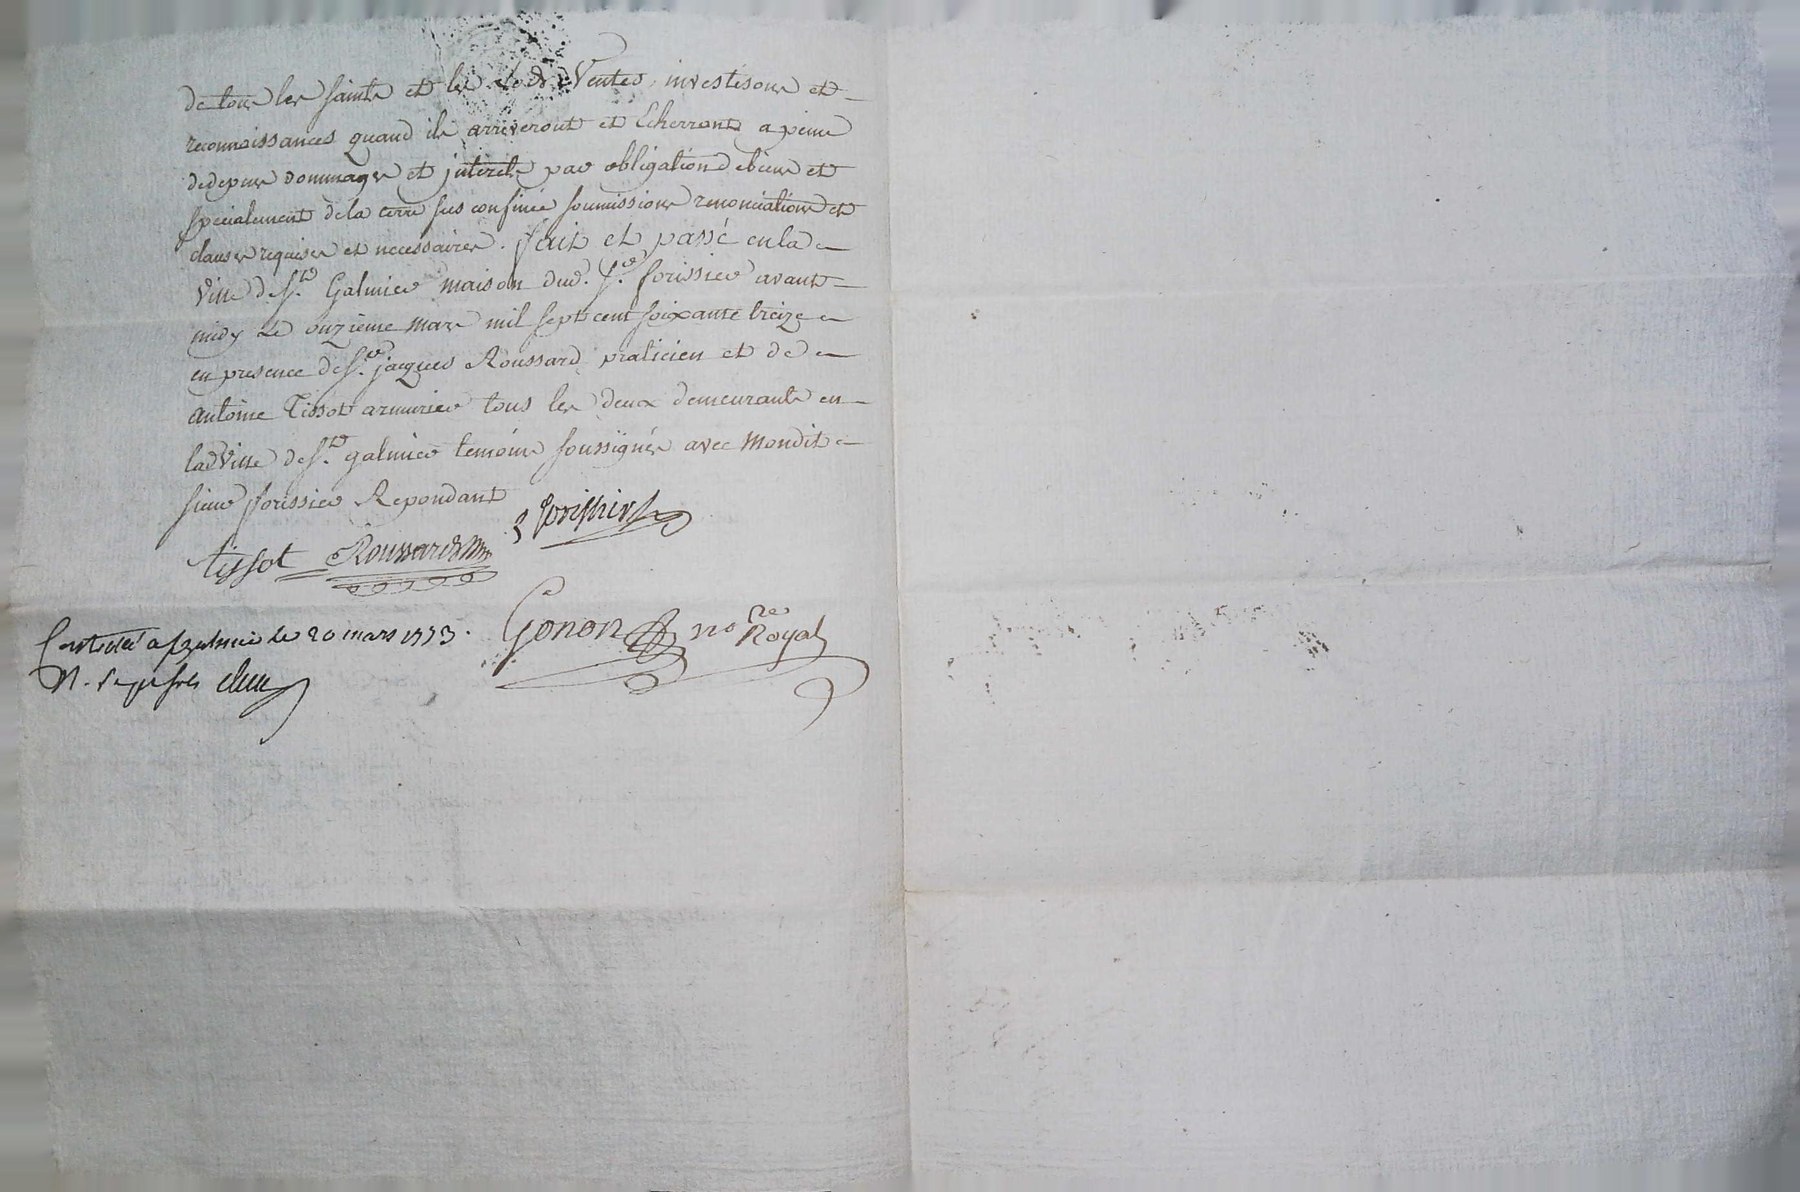 de tous les saints et les Lods Ventes, investisons et
reconnaissances quand ils arriveront et Echerront a peine
de depens dommages et interets par obligation de biens et
specialement de la terre sus confinée soumissions renonciations et
clauses requises et necessaires. fait et passé en la
ville de St. Galmier maison dud. Sr. forissier avant
midy Le onzieme mars mil sept cent soixante treize
en presence de Sr. jacques Roussard praticien et de
antoine Tissot armurier tous les deux demeurants en
lad ville de St. galmier temoins soussignés avec Mondit
sieur forissier Repondant
forissier
tissot Roussard
Controllé a St galmier le 20 mars 1773.
Gonon nore Royal